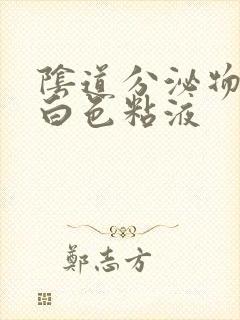 陰道分泌物
白色粘液
鄭志方